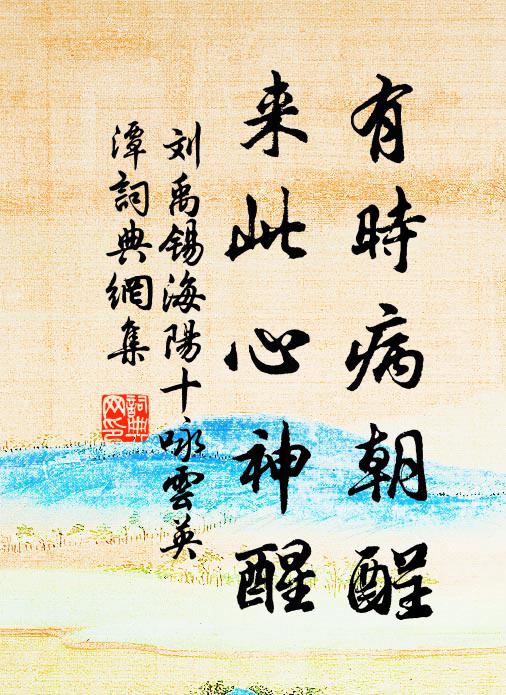 有時病朝酲
来此心神醒
刘禹锡海陽十咏雲英
潭詞典網集
詞典網印